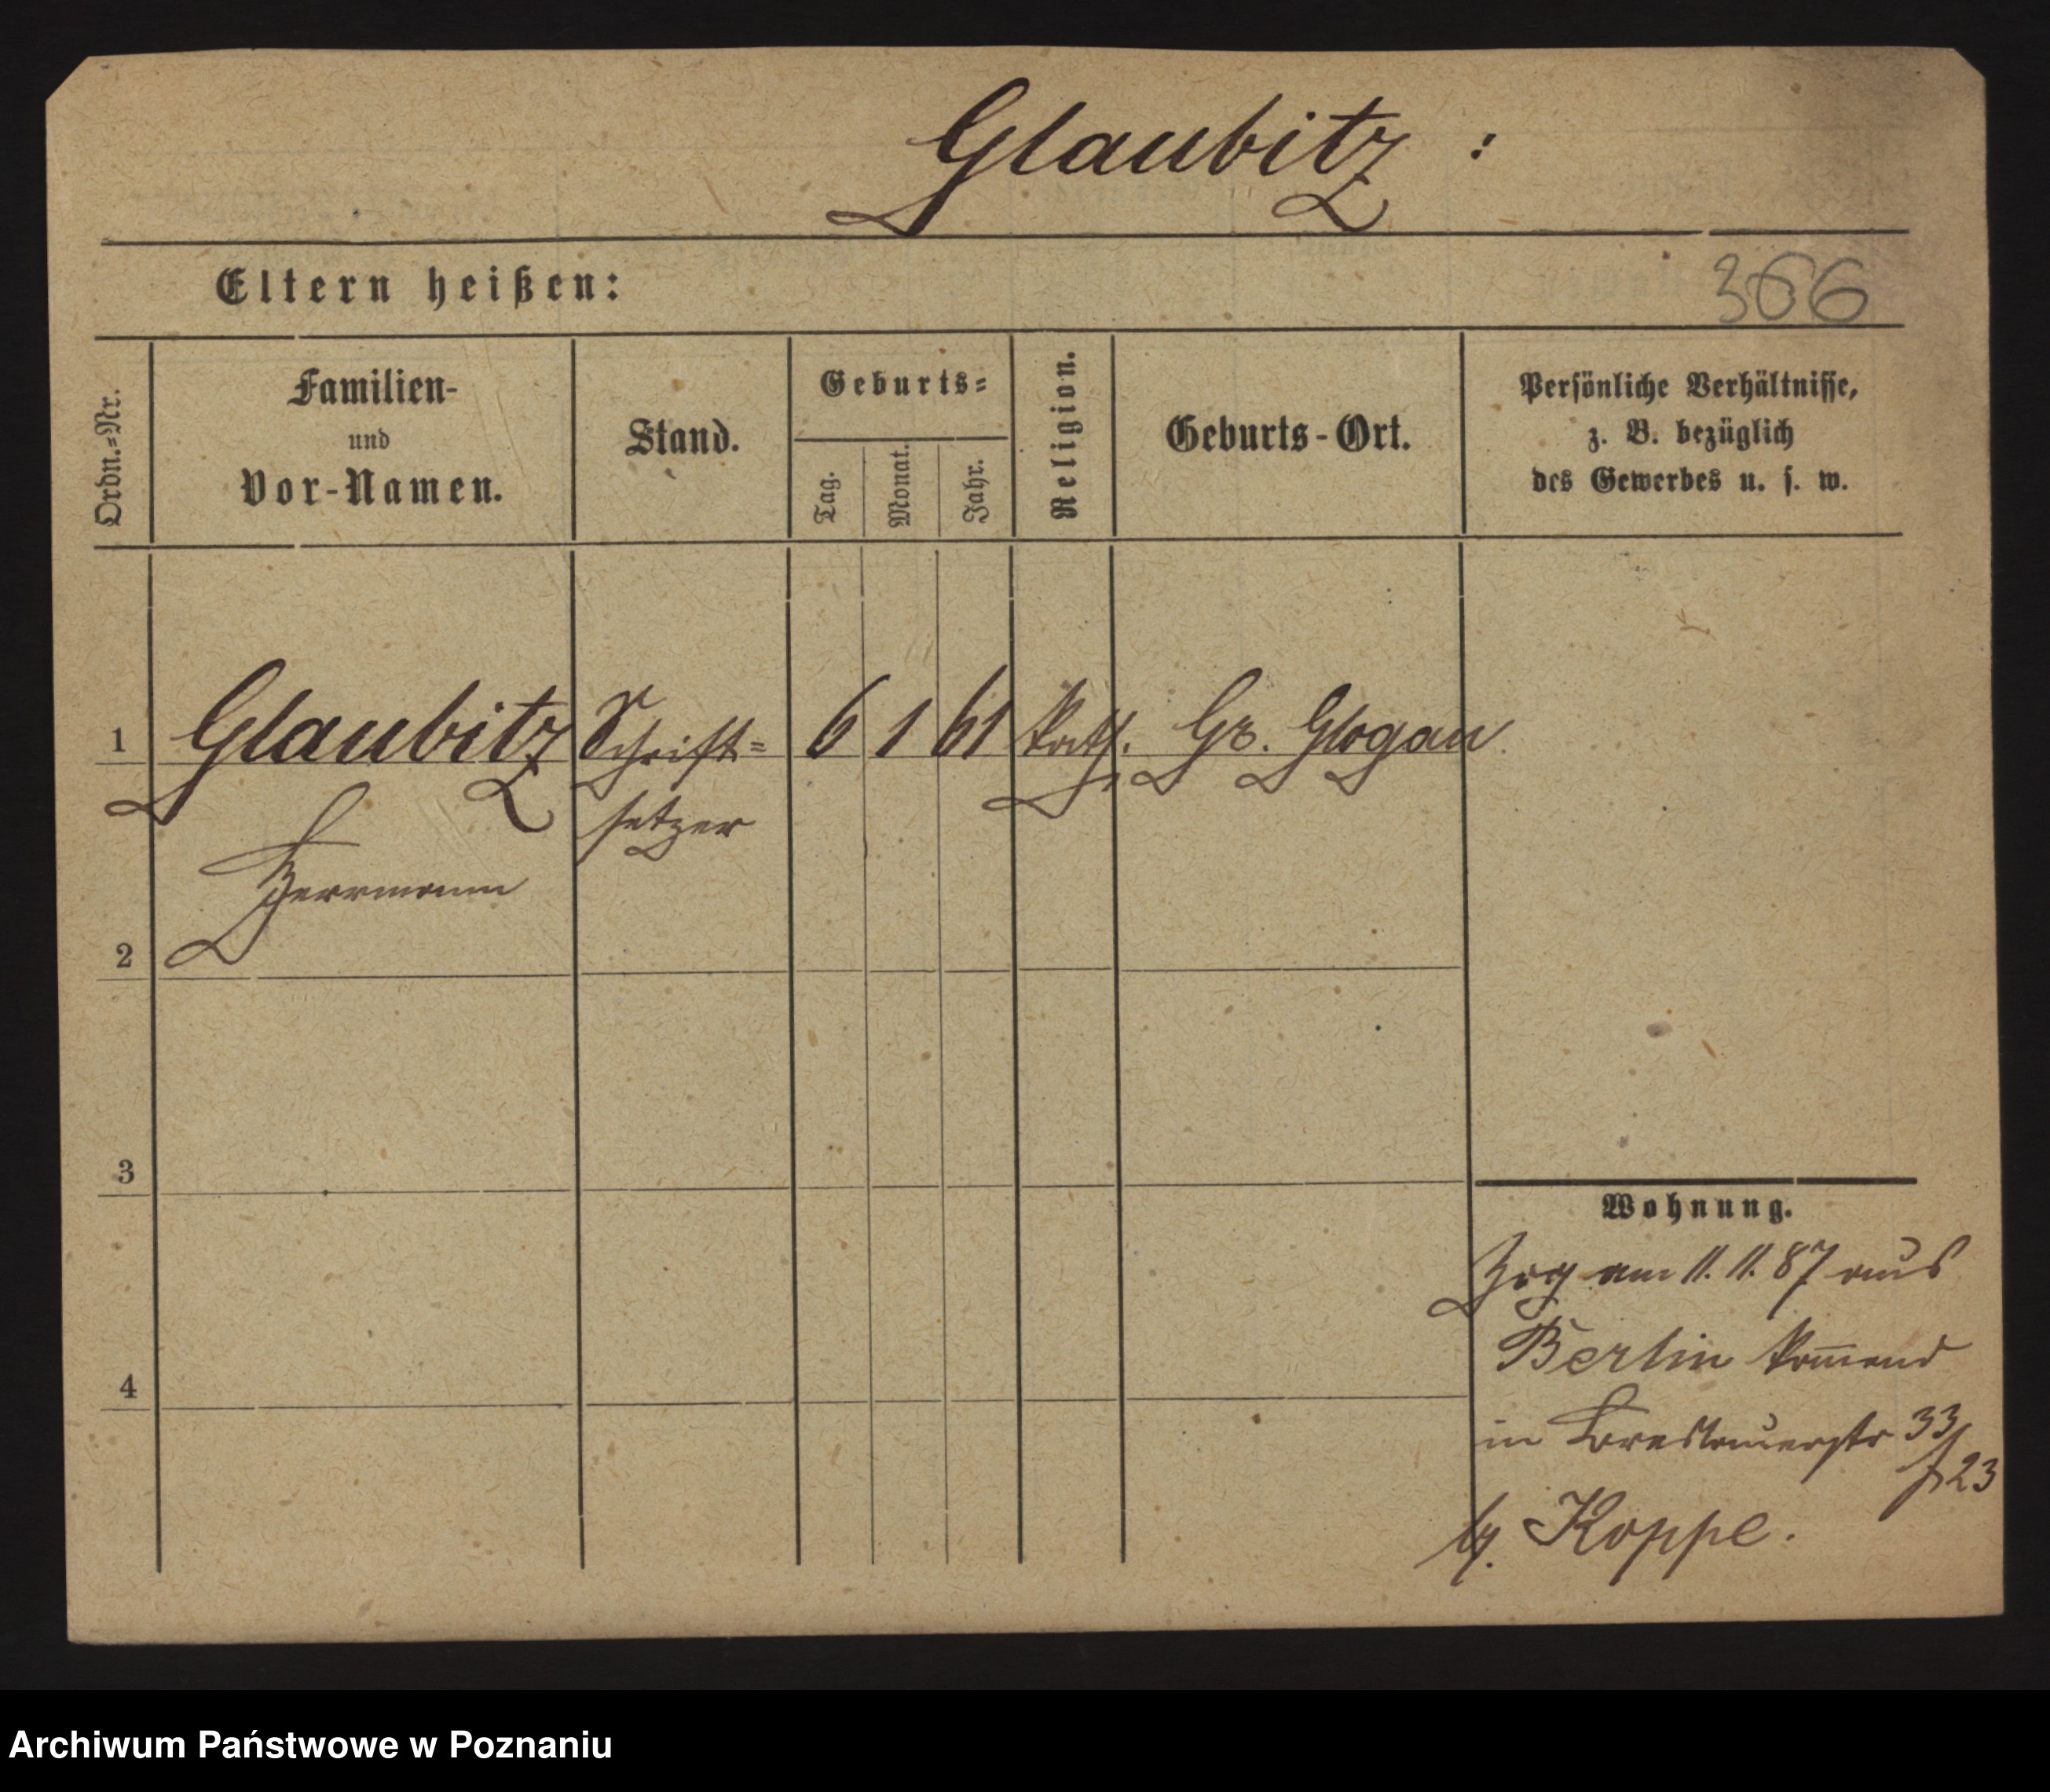 Glaubitz :
Eltern heißen:
366
Ordn.=Nr.
Familien-
und
Vor-Namen.
Stand.
Geburts=
Tag.
Monat.
Jahr.
Religion.
Geburts-Ort.
Persönliche Verhältnisse,
z. B. bezüglich
des Gewerbes u. s. w.
1 Glaubitz Schrift= 6 1 61 kath. Gr. Glogau
setzer
Herrmann
2
3
4
Wohnung.
Zog am 11. 11. 87 aus
Berlin kommend
in Breslauerstr 33
23
Koppe.
Archiwum Państwowe w Poznaniu